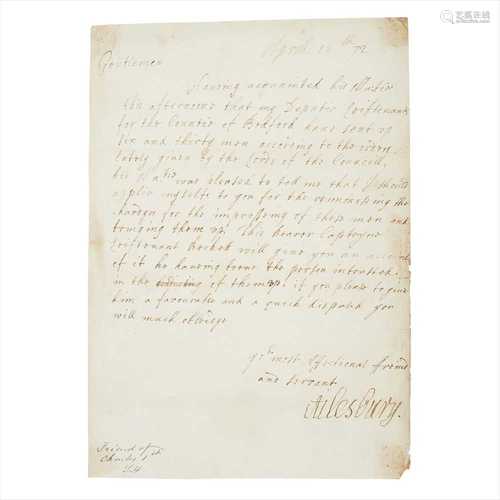 April 12th 72
Gentlemen
Having acquainted his Matie
this afternoone that my Deputie Leiftenants
for the Countie of Bedford have sent up
six and thirty men according to the
lately given by the Lords of the Councill,
his Matie was pleased to tell me that I should
applie myselfe to you for the reimbursing the
charges for the impressing of these men and
bringing them up. This Bearer Captayne
Leiftenant Becket will give you an account
of it he having beene the person intrusted
in the of them if you please to give
him a favourable and a quick dispatch you
will much obleige
yr most affectionat freind
and servant
Ailesbury.
Friend of
Charles 1st